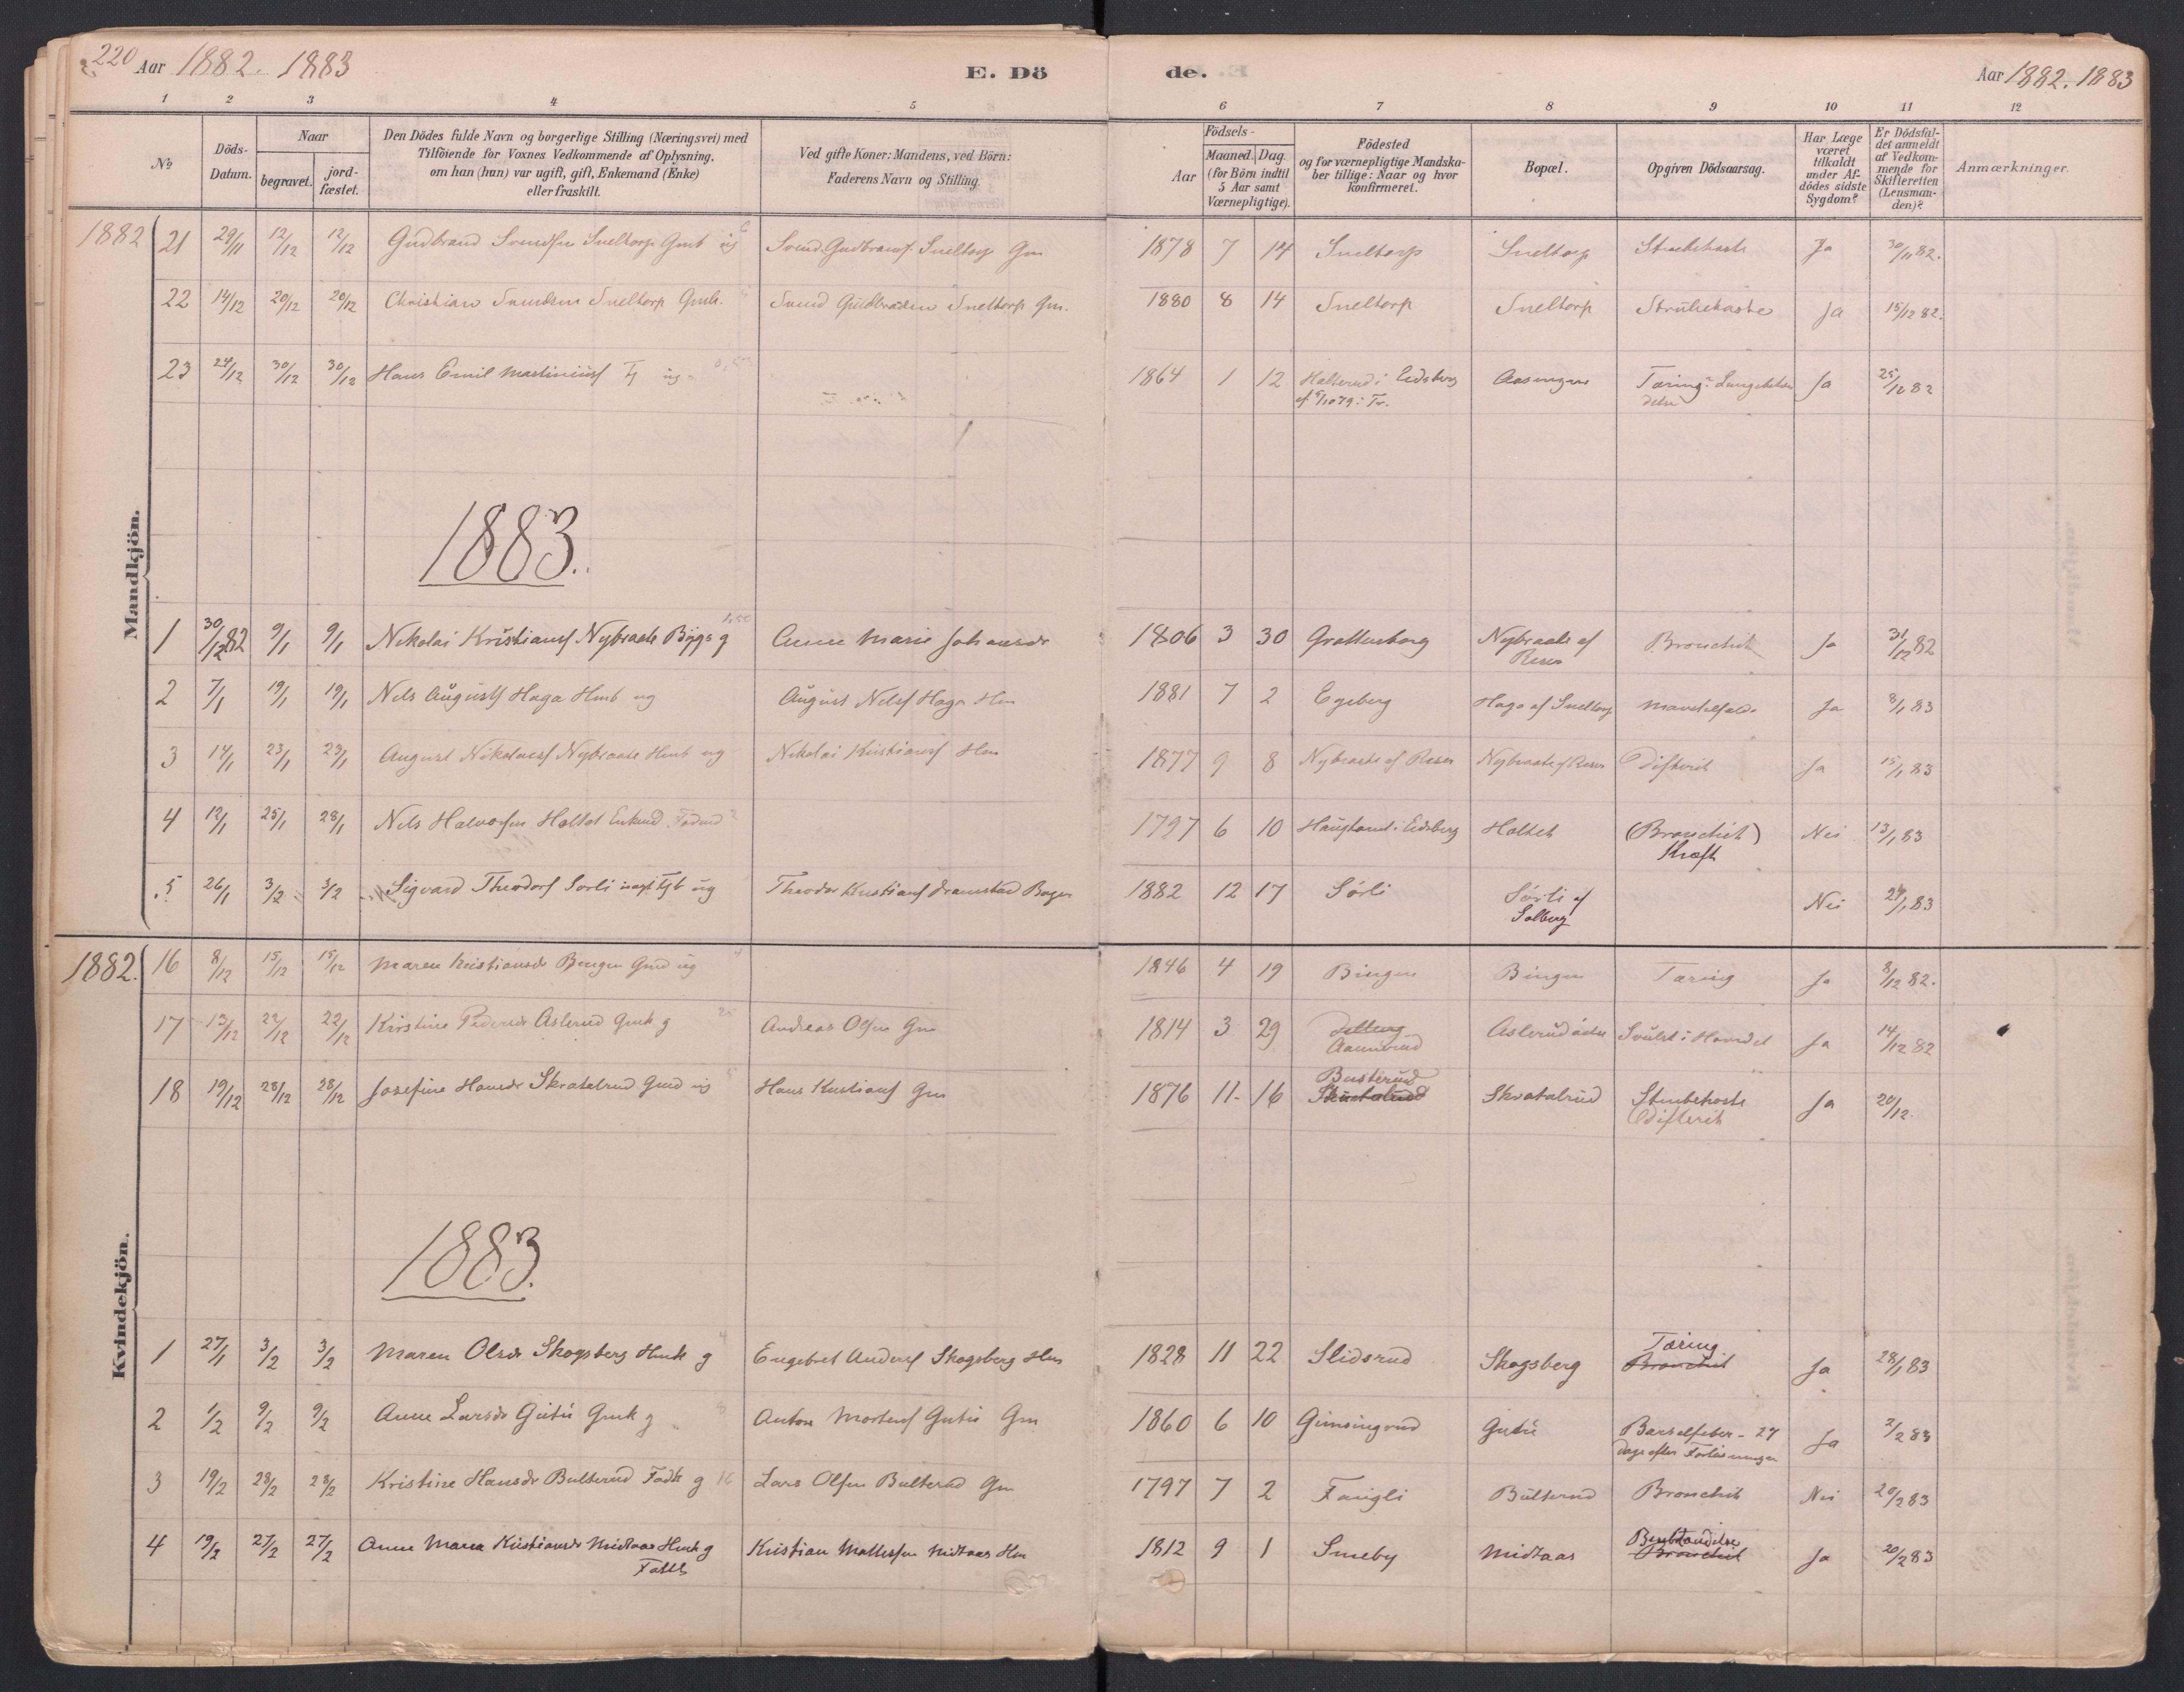 220 Aar 1882. 1883
E. Dö
de.
Aar 1882. 1883
1 2 3 4 5 6 7 8 9 10 11 12
No
Döds-Datum.
Naar
begravet.
jord-fæstet.
Den Dödes fulde Navn og borgerlige Stilling (Næringsvei) med
Tilföiende for Voxnes Vedkommende af Oplysning,
om han (hun) var ugift, gift, Enkemand (Enke)
eller fraskilt.
Ved gifte Koner: Mandens, ved Börn:
Faderens Navn og Stilling.
Födsels-
Aar
Maaned. Dag.
(for Börn indtil
5 Aar samt
Værnepligtige).
Födested
og for værnepligtige Mandska-
ber tillige: Naar og hvor
konfirmeret.
Bopæl.
Opgiven Dödsaarsag.
Har Læge
været
tilkaldt
under Af-
dödes sidste
Sygdom?
Er Dödsfal-
det anmeldt
af Vedkom-
mende for
Skifteretten
(Lensman-
den)?
Anmærkninger.
Mandkjön.
1882 21 29/11 12/12 12/12 Gudbrand Svendsen Sneltorp Gmb ug Svend Gudbrandsf Sneltorp Gm 1878 7 14 Sneltorp Sneltorp Strubehoste Ja 30/11 82.
22 14/12 20/12 20/12 Christian Svendsen Sneltorp Gmb. Svend Gudbrandsen Sneltorp Gm. 1880 8 14 Sneltorp Sneltorp Strubehoste Ja 15/12 82.
23 24/12 30/12 30/12 Hans Emil Martiniusf Tj ug 1864 1 12 Halterud i Eidsberg Aasengen Tæring Ja 25/12 82
1883.
1 30/12 82 9/1 9/1 Nikolai Kristiansf Nybraate g Anne Marie Johansdr 1806 3 30 Grottenborg Nybraate af Bronchit Ja 31/12 82
2 7/1 19/1 19/1 Nils Augustsf Haga Hmb ug August Nilsf Haga Hm 1881 7 2 Egeberg Haga af Sneltorp Ja 8/1 83
3 14/1 23/1 23/1 August Nikolaisf Nybraate Hmb ug Nikolai Kristiansf Hm 1877 9 8 Nybraate af Nybraate af Difterit Ja 15/1 83
4 12/1 25/1 28/1 Nils Halvorsen Holtet 1797 6 10 i Eidsberg Holtet (Bronchit) Nei 13/1 83
Kræft
5 26/1 3/2 3/2 Sigvard Theodorsf Sørli ug Theodor Kristiansf 1882 12 17 Sörli Sörli af Nei 29/1 83
Solberg
Kvindekjön.
1882. 16 8/12 15/12 15/12 Maren Kristiansdr Bingen ug 1846 4 19 Bingen Bingen Tæring Ja 8/12 82.
17 13/12 22/12 22/12 Kirstine Pedersdr Aslerud Gmk g Andreas Olsen Gm 1814 3 29 Svulst i Hovedet Ja 14/12 82
18 19/12 28/12 28/12 Josefine Hansdr Skratalrud ug Hans Kristiansf Gm 1876 11 16 Busterud Skratalrud Strubehoste Ja 20/12
Difterit
1883.
1 27/1 3/2 3/2 Maren Olsdr Skogsberg Hmk g Engebret Andersf Skogsberg Hm 1828 11 22 Slidsrud Skogsberg Tæring Ja 28/1 83
Bronchit
2 1/2 9/2 9/2 Anne Larsdr Gutu Gmk g Anton Mortensf Gutu Gm 1860 6 10 Gimsingrud Gutu Barselfeber - 27 Ja 2/2 83
dage efter
3 19/2 28/2 28/2 Kristine Hansdr Bulterud g Lars Olsen Bulterud Gm 1797 7 2 Faugli Bulterud Bronchit Nei 20/2 83
4 19/2 27/2 27/2 Anne Maria Kristiansdr Midtaas Hmk g Kristian Mathisen Midtaas Hm 1812 9 1 Smeby Midtaas Ja 20/2 83
Bronchit